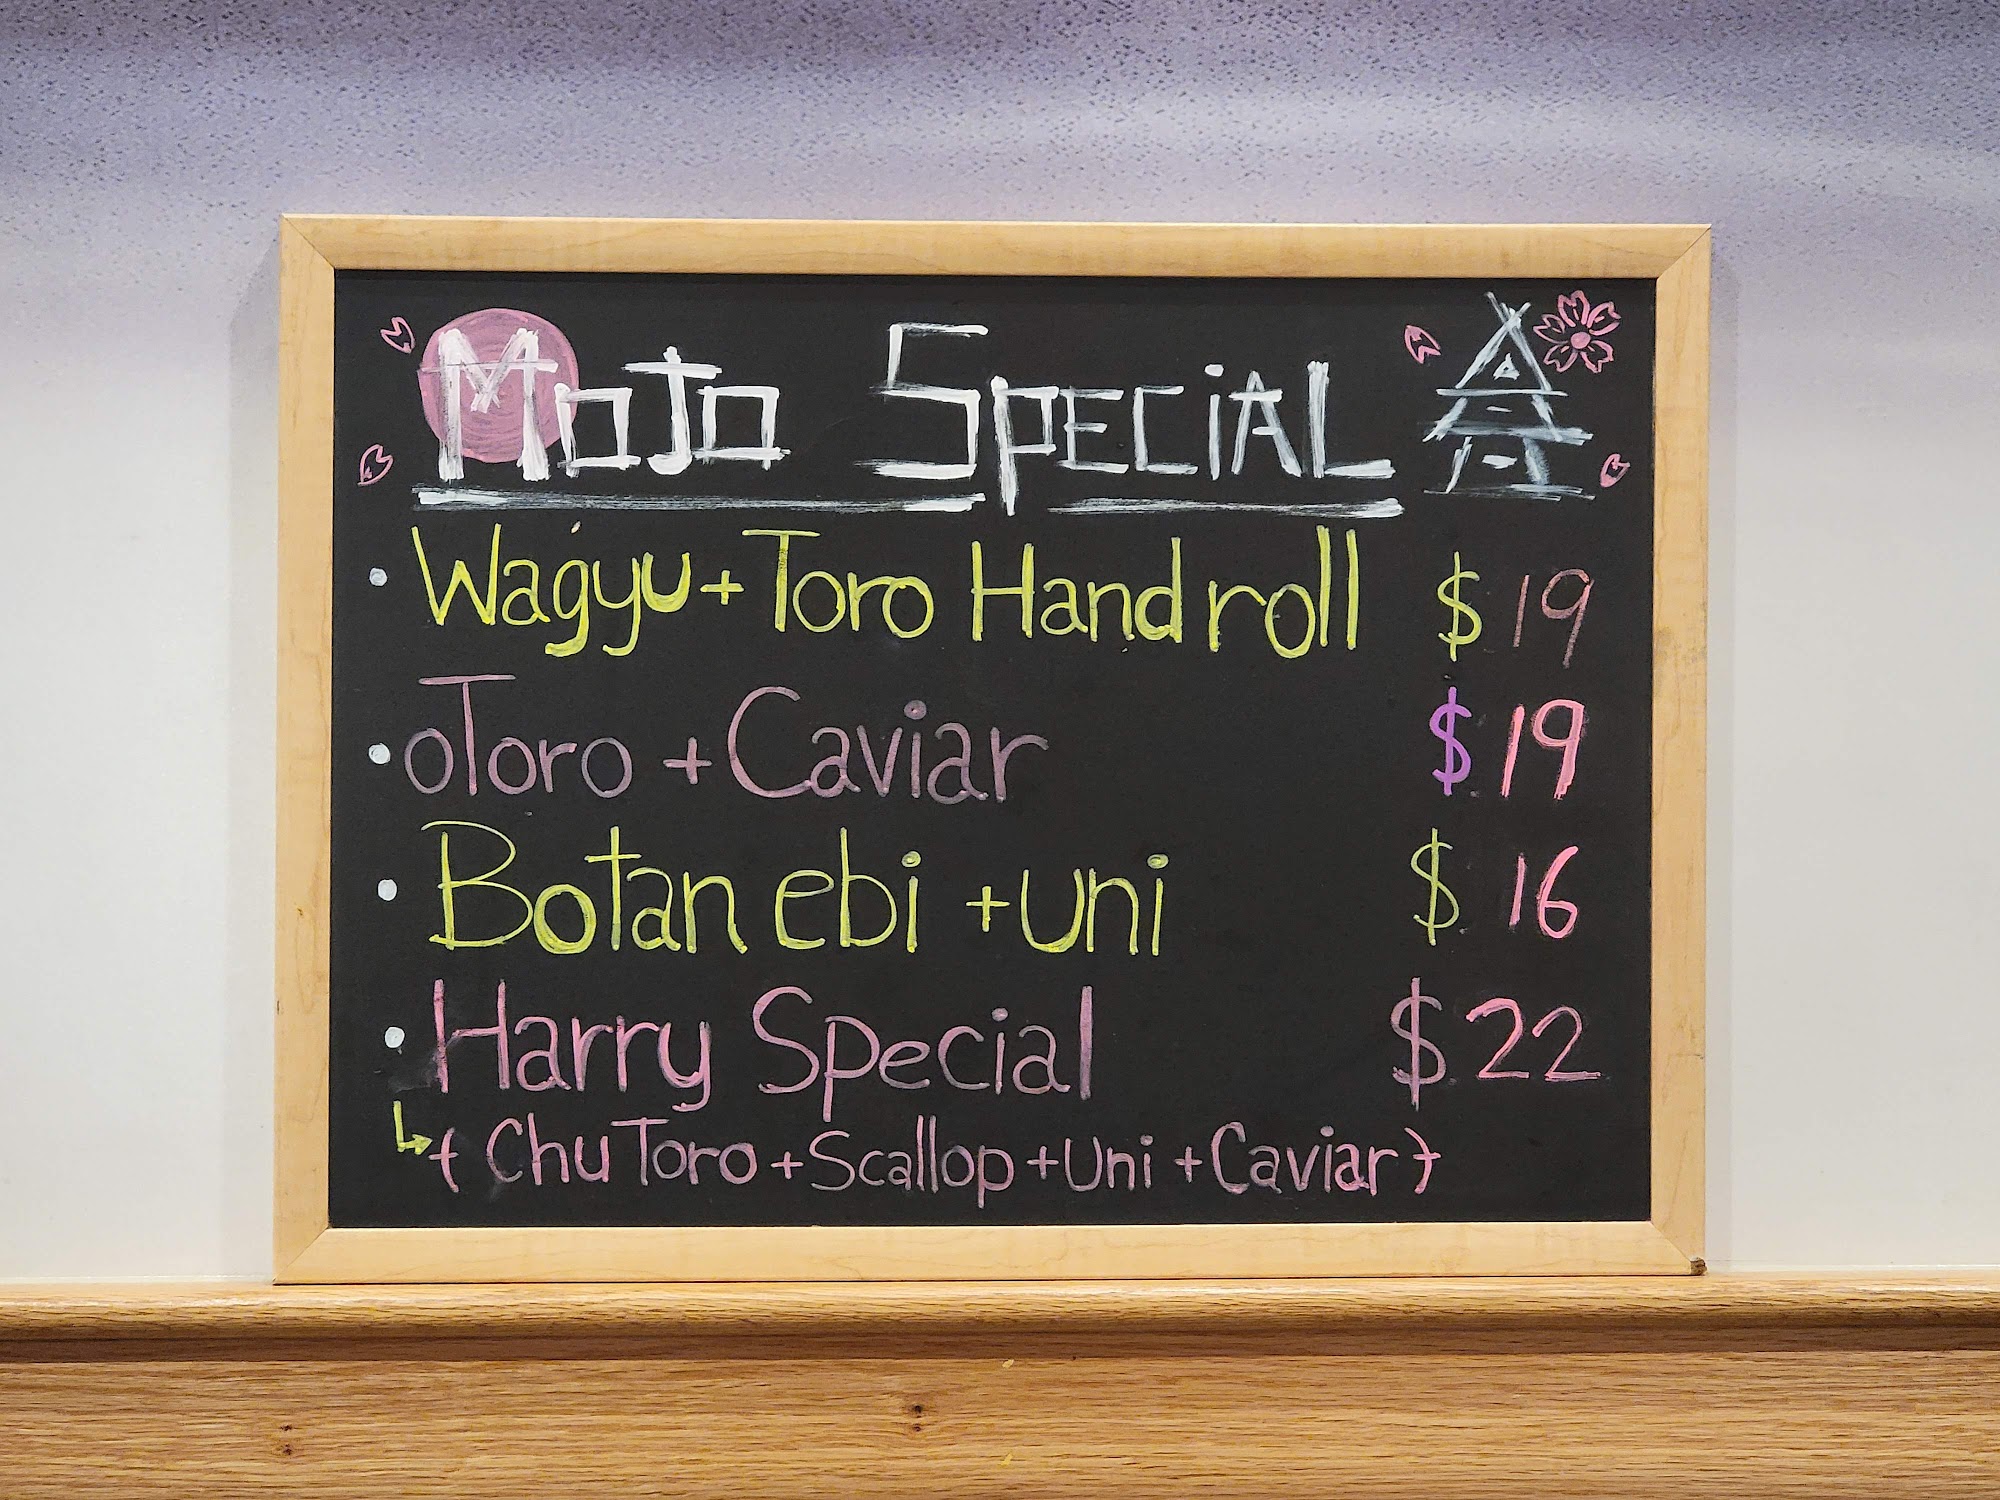 MoJo Special
• Wagyu + Toro Hand roll $ 19
• oToro + Caviar $ 19
• Botan ebi + uni $ 16
• Harry Special $ 22
↳ { Chu Toro + Scallop + Uni + Caviar }